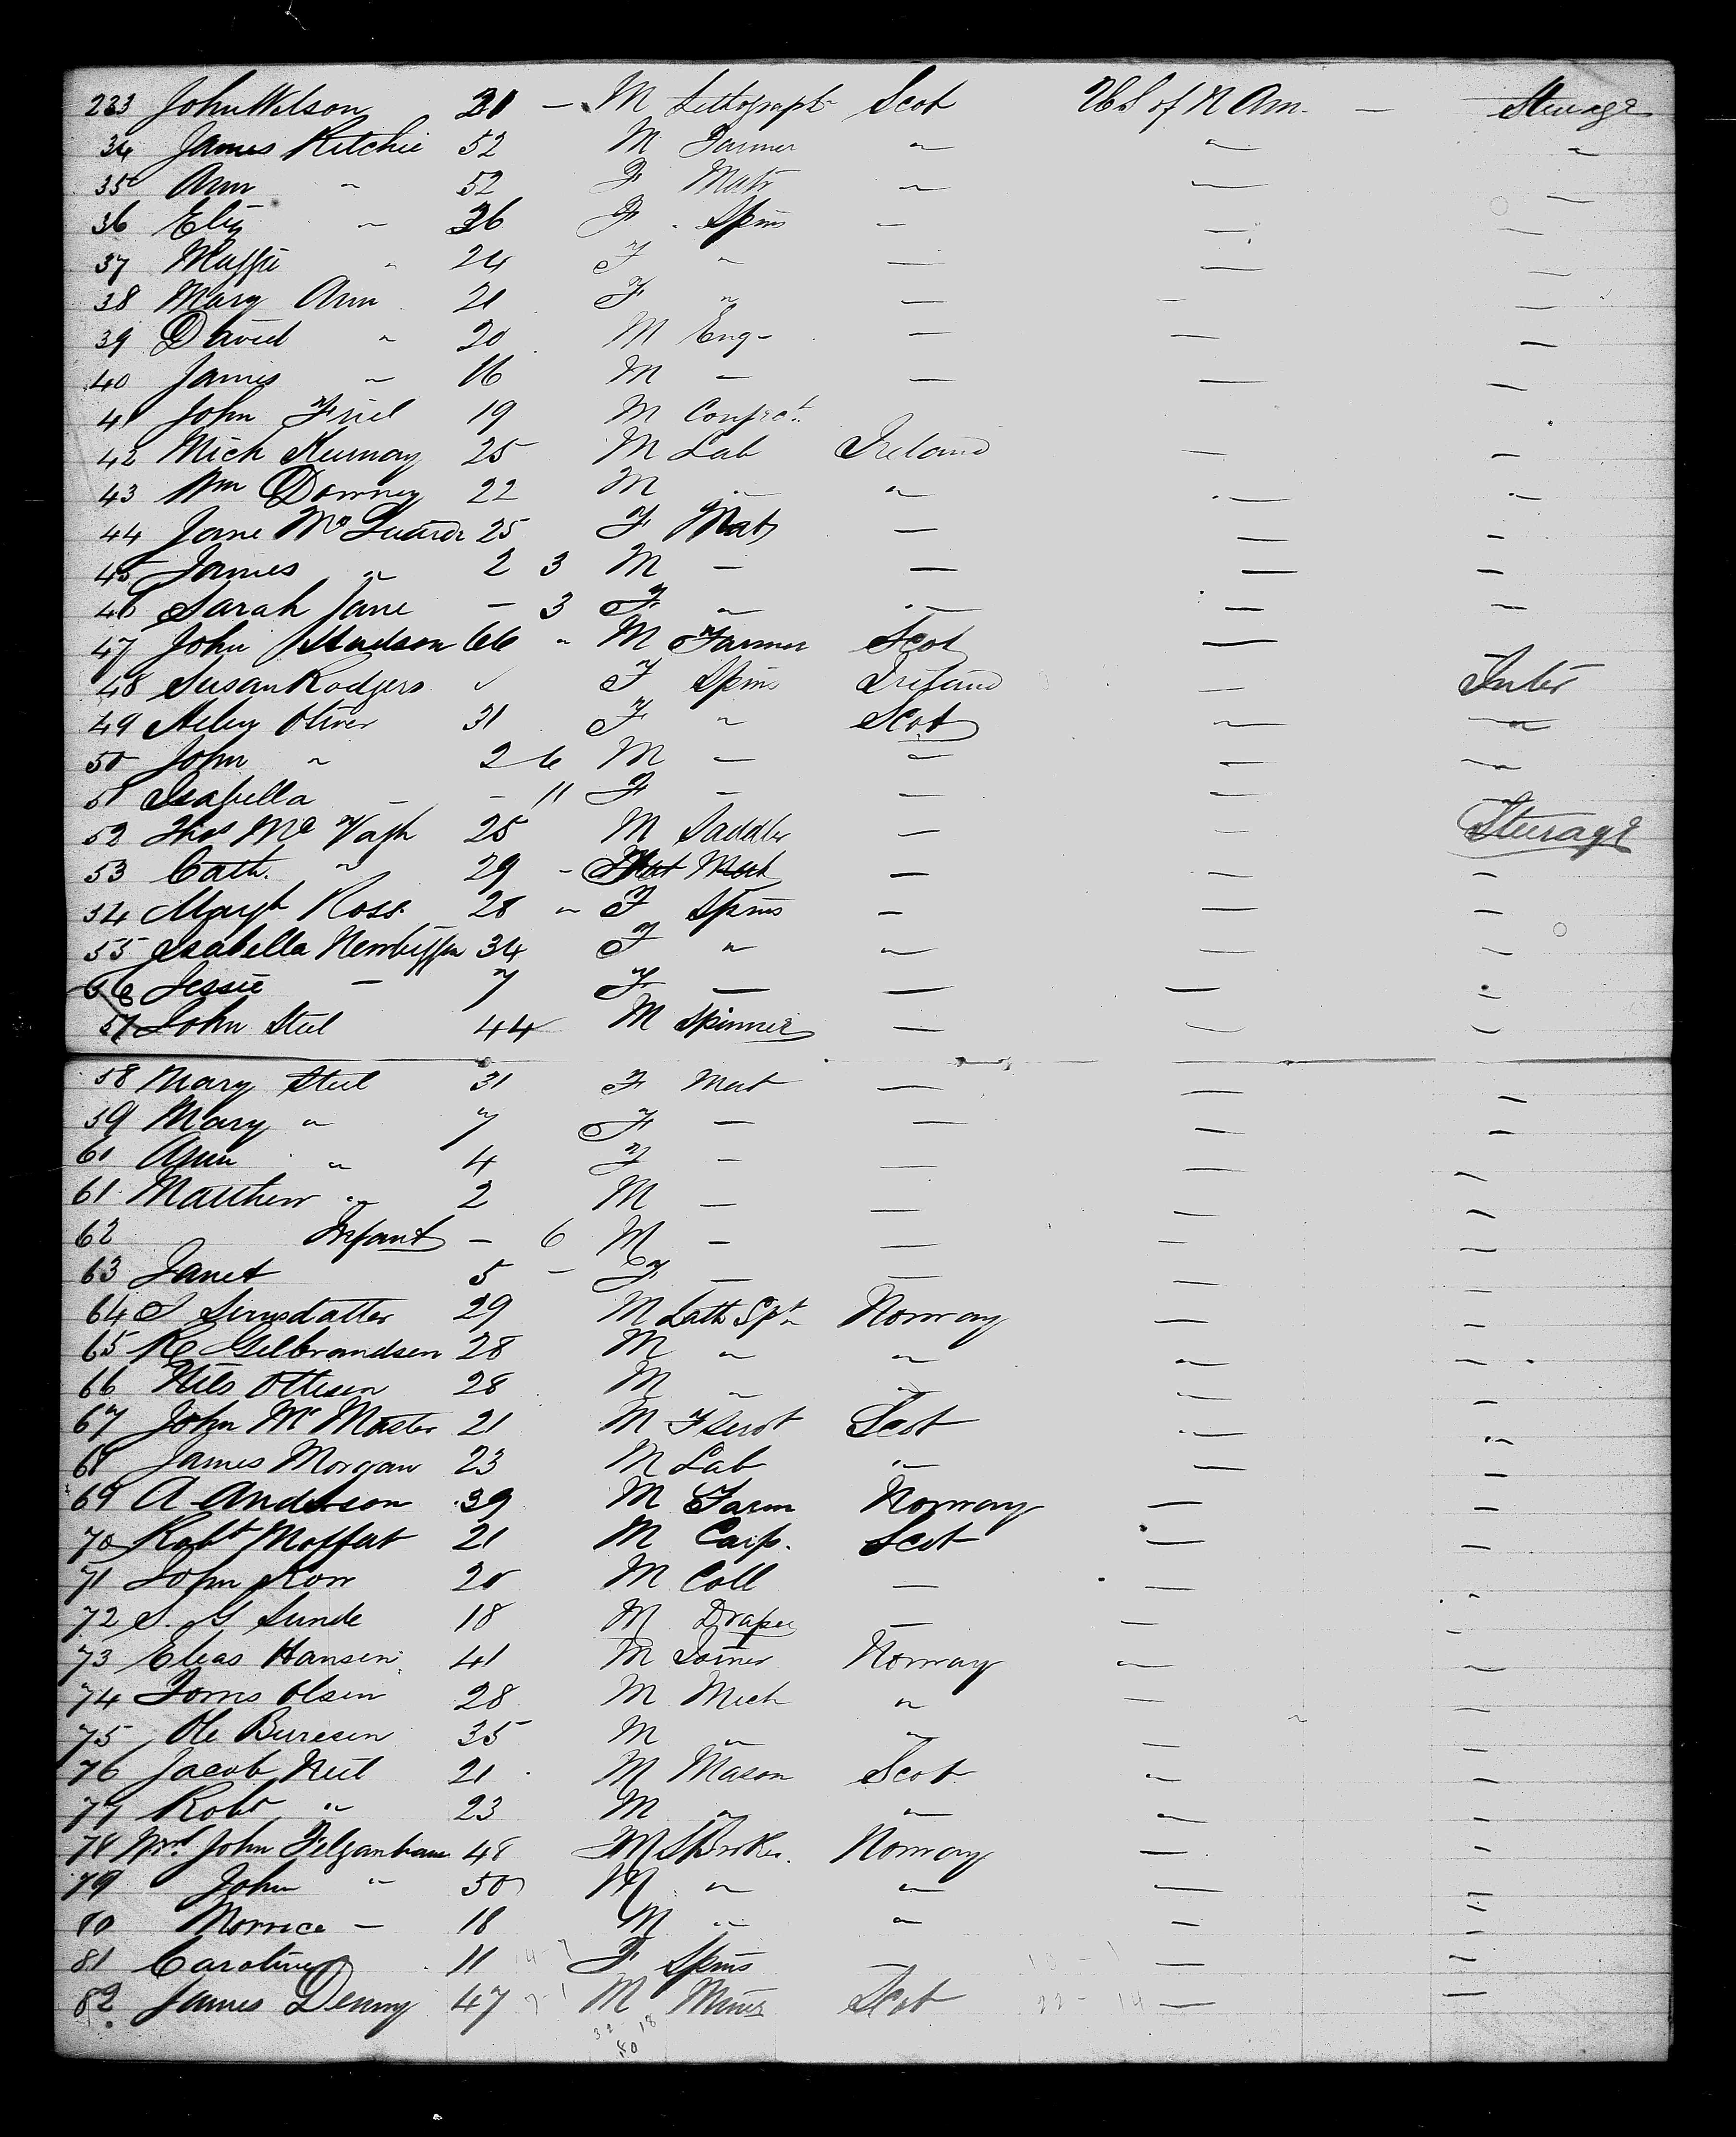 233 John Wilson 21 — M Lithograph Scot U S of N Am. — Steerage
34 James Ritchie 52 M Farmer " " "
35 Ann " 52 F Matr " — —
36 Eliz " 26 F Spins — — —
37 Maggie " 24 F " — — —
38 Mary Ann 21 F " — — —
39 David " 20 M Eng - — — —
40 James " 16 M — — — —
41 John Friel 19 M Confect.
42 Mich 25 M Lab Ireland — —
43 Wm Downey 22 M " " — "
44 Jane Mc 25 F Mat — — —
45 James " 2 3 M — — — —
46 Sarah Jane — 3 F " — — "
47 John Hudson 66 " M Farmer Scot —
48 Susan Rodgers " F Spins Ireland — Inter
49 Oliver 31 F " Scot " "
50 John " 2 6 M — " — "
51 Isabella — — 11 F — — — "
52 Thos Mc 25 M Saddler — — Steerage
53 Cath. " 29 - Mat — — —
54 Margt Ross 28 " F Spins — — —
55 Isabella 34 F " " — —
56 Jessie — 7 F — — — —
57 John Steel 44 M Spinner — — —
58 Mary Steel 31 F Mat — — —
59 Mary " 7 F — — — —
61 Ann " 4 F — — — —
61 Matthew " 2 M — — — —
62 Infant — 6 M — — — —
63 Janet 5 — F — — — —
64 29 M Norway — —
65 K Gilbrandsen 28 M " " " —
66 Nils Ottesen 28 M " " — —
67 John McMaster 21 M F Servt Scot — "
68 James Morgan 23 M Lab " — —
69 A Anderson 39 M Farm Norway — —
70 Robt Moffat 21 M Carp. Scot — —
71 John 20 M Coll — — —
72 S. G Sunde 18 M Draper — — —
73 Elias Hansen 41 M Joiner Norway " —
74 Olsen 28 M Mech " — —
75 Ole 35 M " " — —
76 Jacob Neil 21 M Mason Scot " —
77 Robt " 23 M " " " —
78 John 48 M Norway — —
79 John " 50 M " " — —
80 — 18 M " " — —
81 Caroline 11 F Spins — — —
82 James Denny 47 M Miner Scot — —